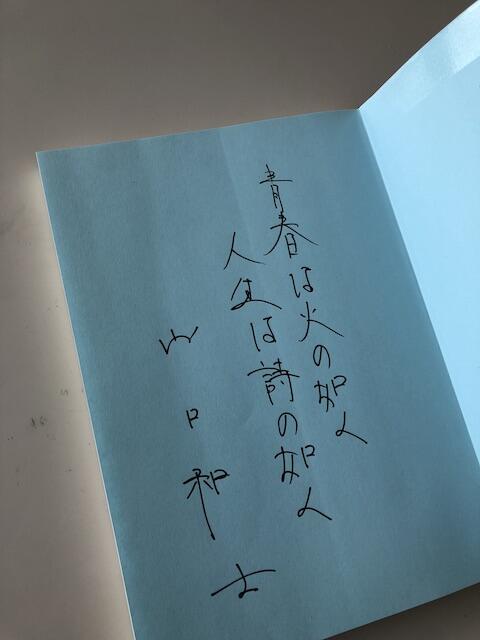 青春は火の如く
人生は詩の如く
山口和士